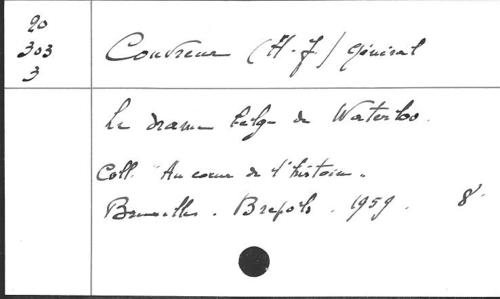 20
303
3
Couvreur (H-J) général
Le drame belge de Waterloo.
Coll. "Au coeur de l'histoire.
Bruxelles. Brepols. 1959. 8°